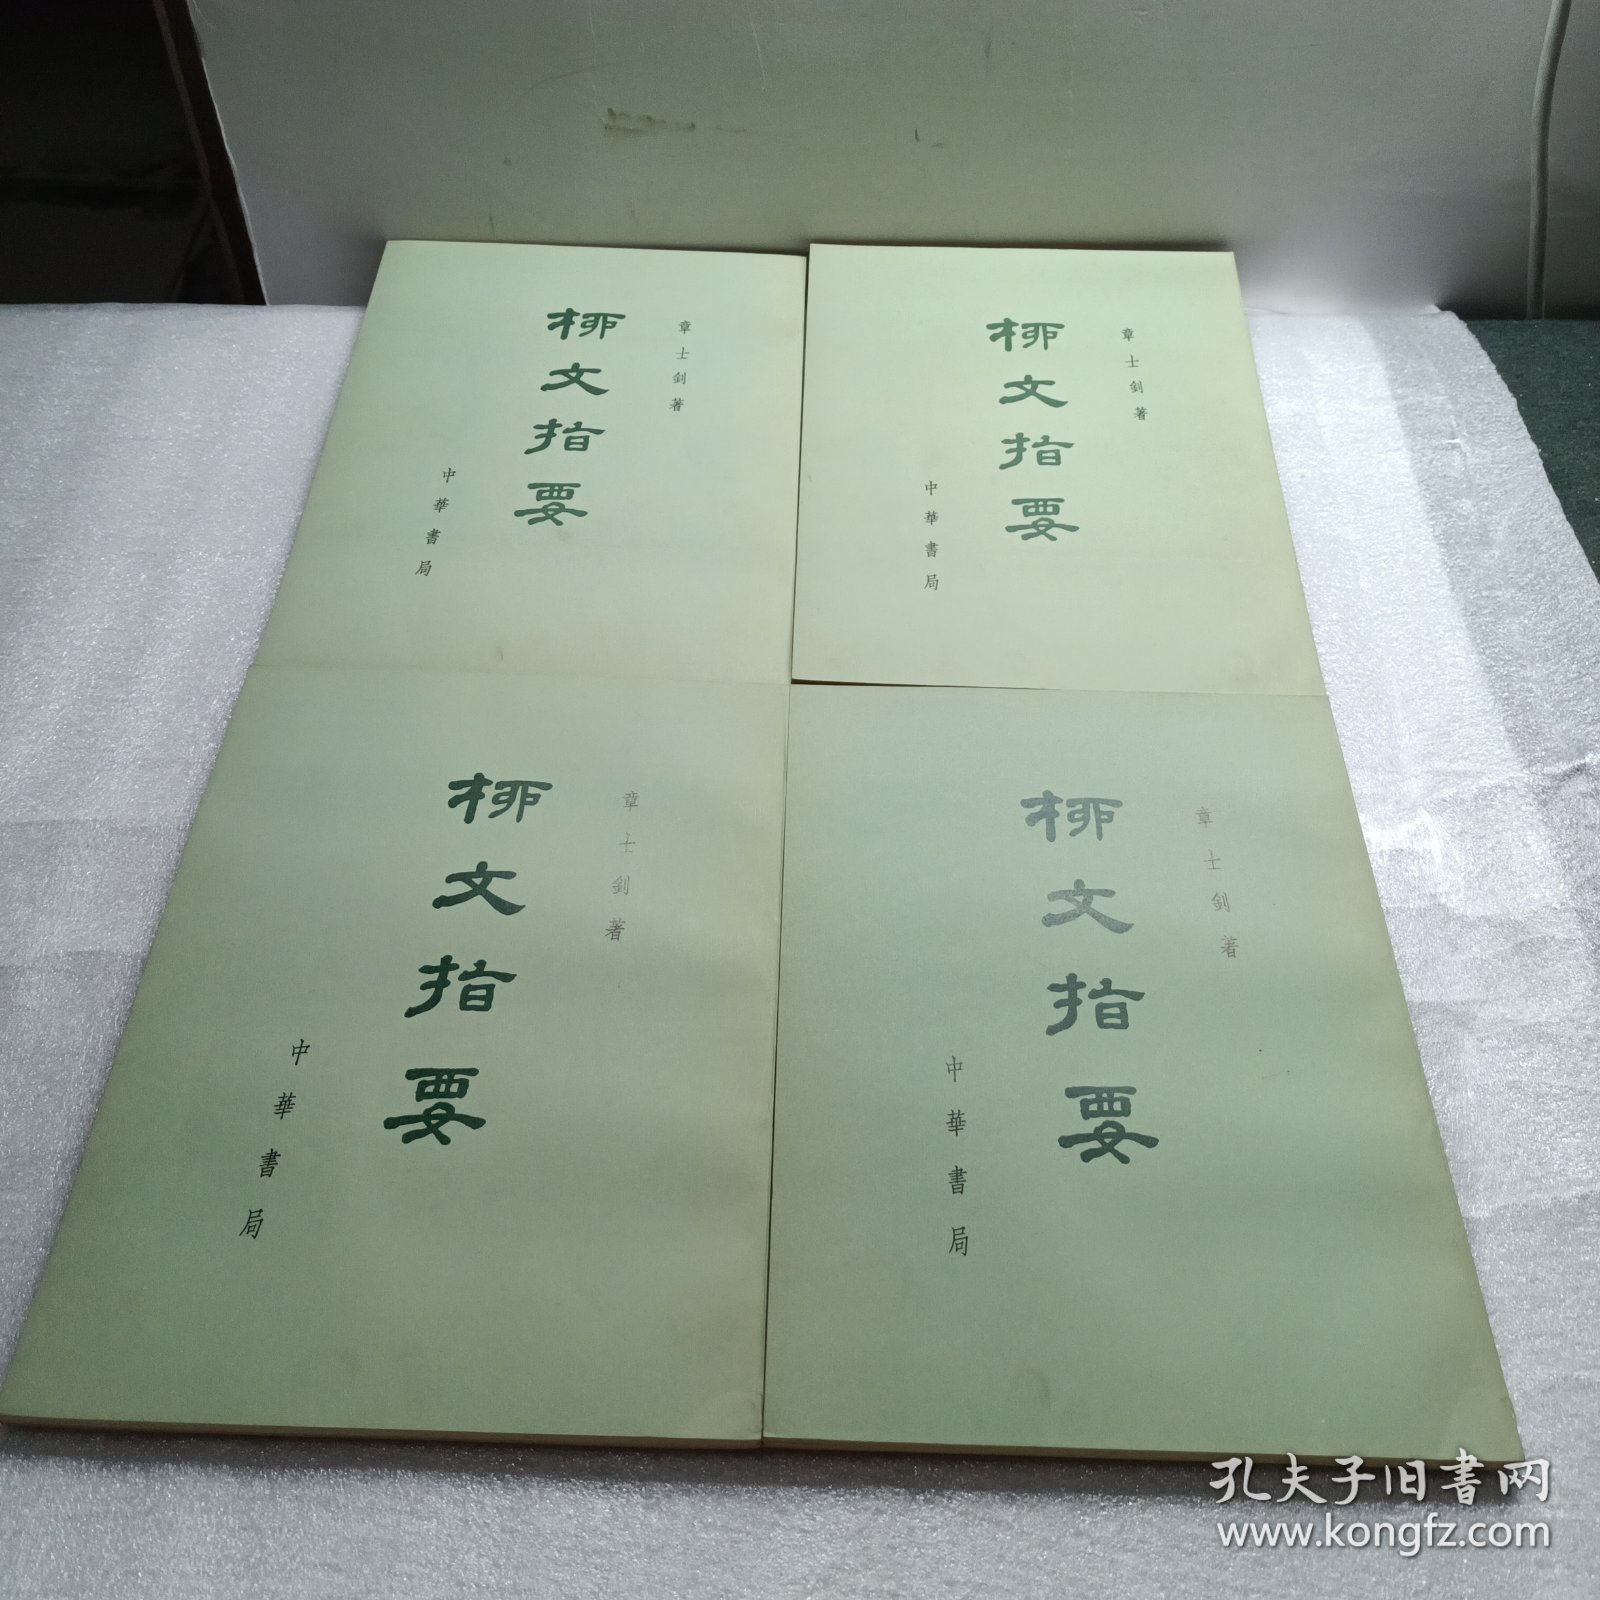 章士釗著
柳文指要
中華書局
章士釗著
柳文指要
中華書局
章士釗著
柳文指要
中華書局
章士釗著
柳文指要
中華書局
孔夫子旧书网
www.kongfz.com